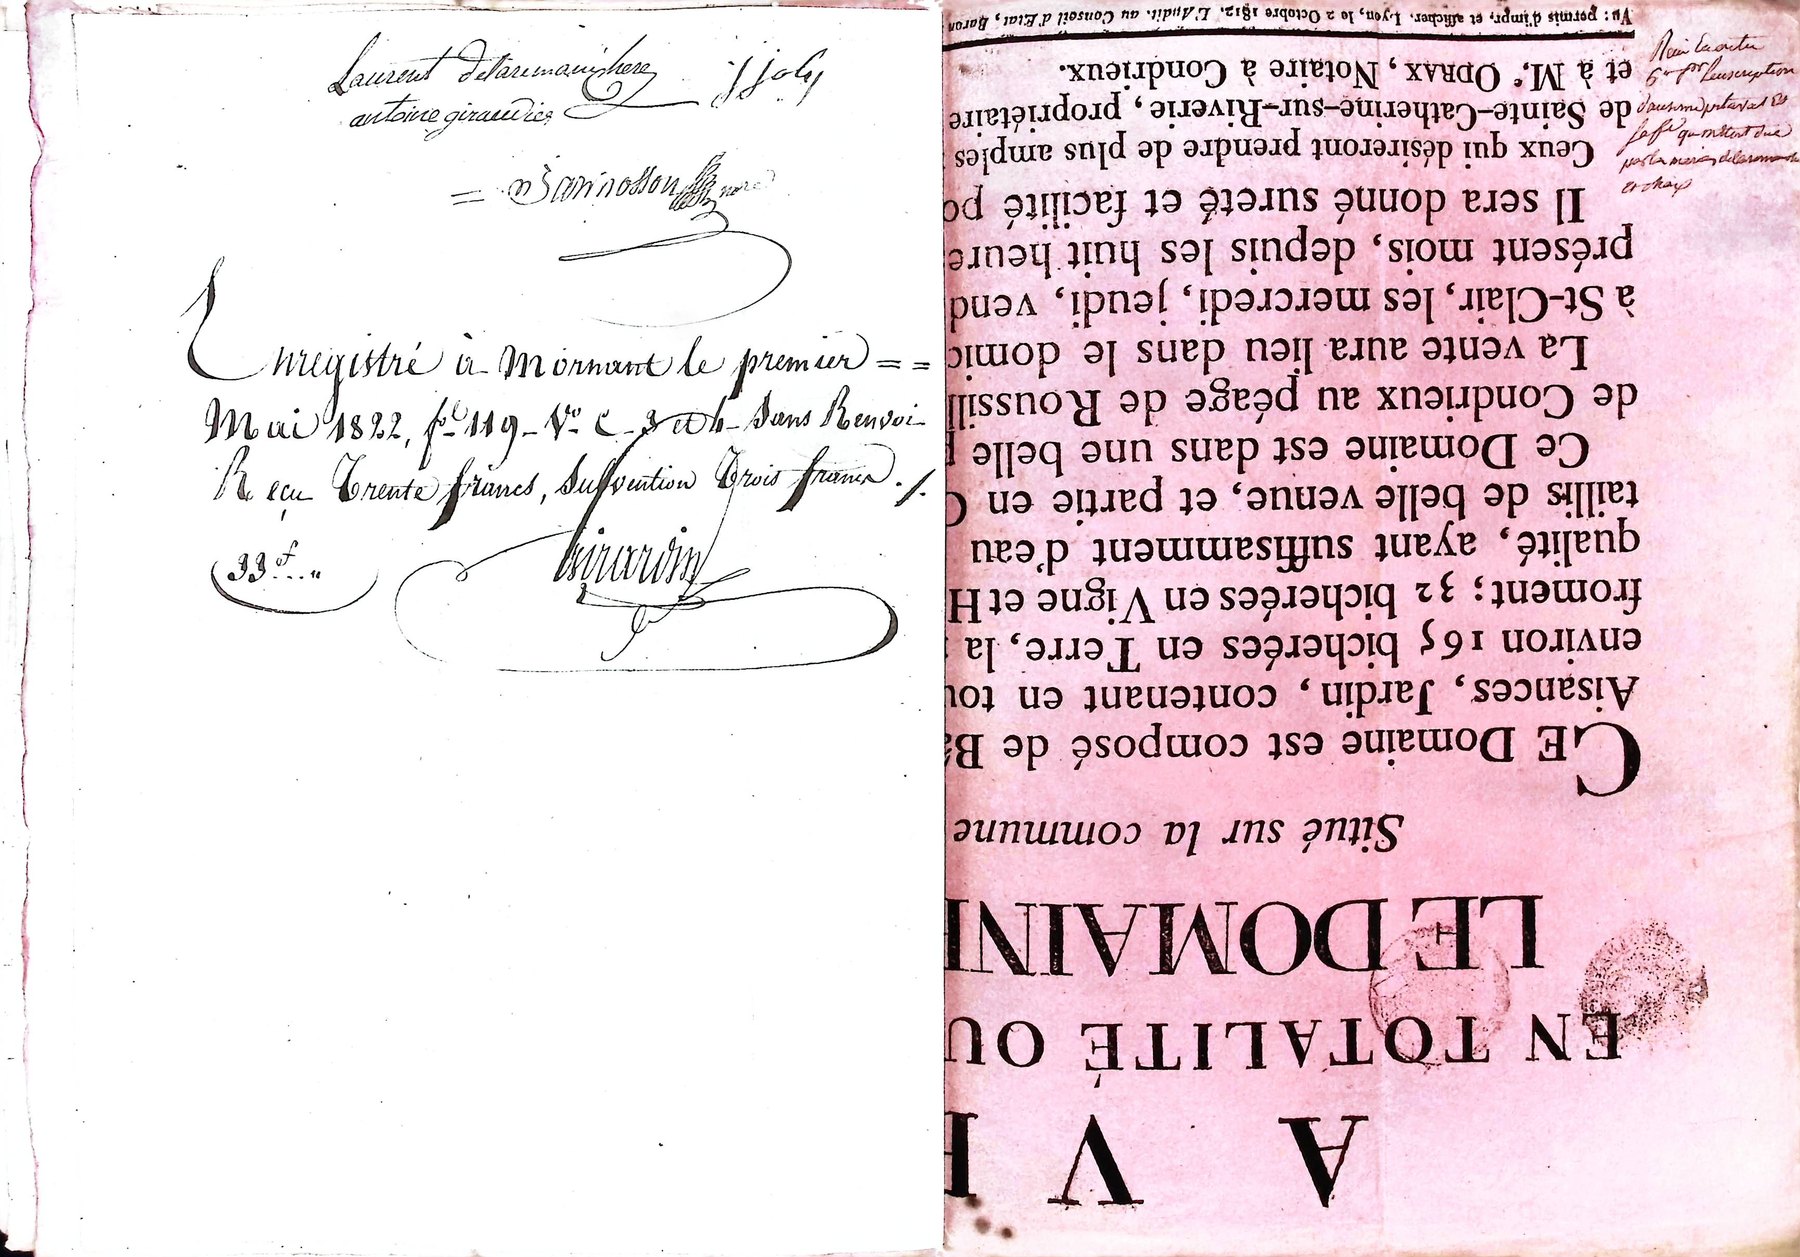 Laurent delaremanichere jjoly
antoine giraudier
= Jannosson nore
Enregistré à Mornant le premier = =
Mai 1822, fol 119 Vo C. 3 et 4 Sans Renvoi
Reçu Trente francs, Subvention Trois francs ./.
33f..."
Girardin
A VE
EN TOTALITÉ OU
LE DOMAINE
Situé sur la commune
CE Domaine est composé de Ba
Aisances, Jardin, contenant en tou
environ 165 bicherées en Terre, la
froment; 32 bicherées en Vigne et H
qualité, ayant suffisamment d'eau
taillis de belle venue, et partie en C
Ce Domaine est dans une belle p
de Condrieux au péage de Roussill
La vente aura lieu dans le domic
à St-Clair, les mercredi, jeudi, vend
présent mois, depuis les huit heure
Il sera donné sureté et facilité po
Ceux qui désireront prendre de plus amples
de Sainte-Catherine-sur-Riverie, propriétaire
et à M.e ODRAX, Notaire à Condrieux.
Vu: permis d'impr. et afficher. Lyon, le 2 Octobre 1812. L'Audit. au Conseil d'Etat, Baron
l'inscription